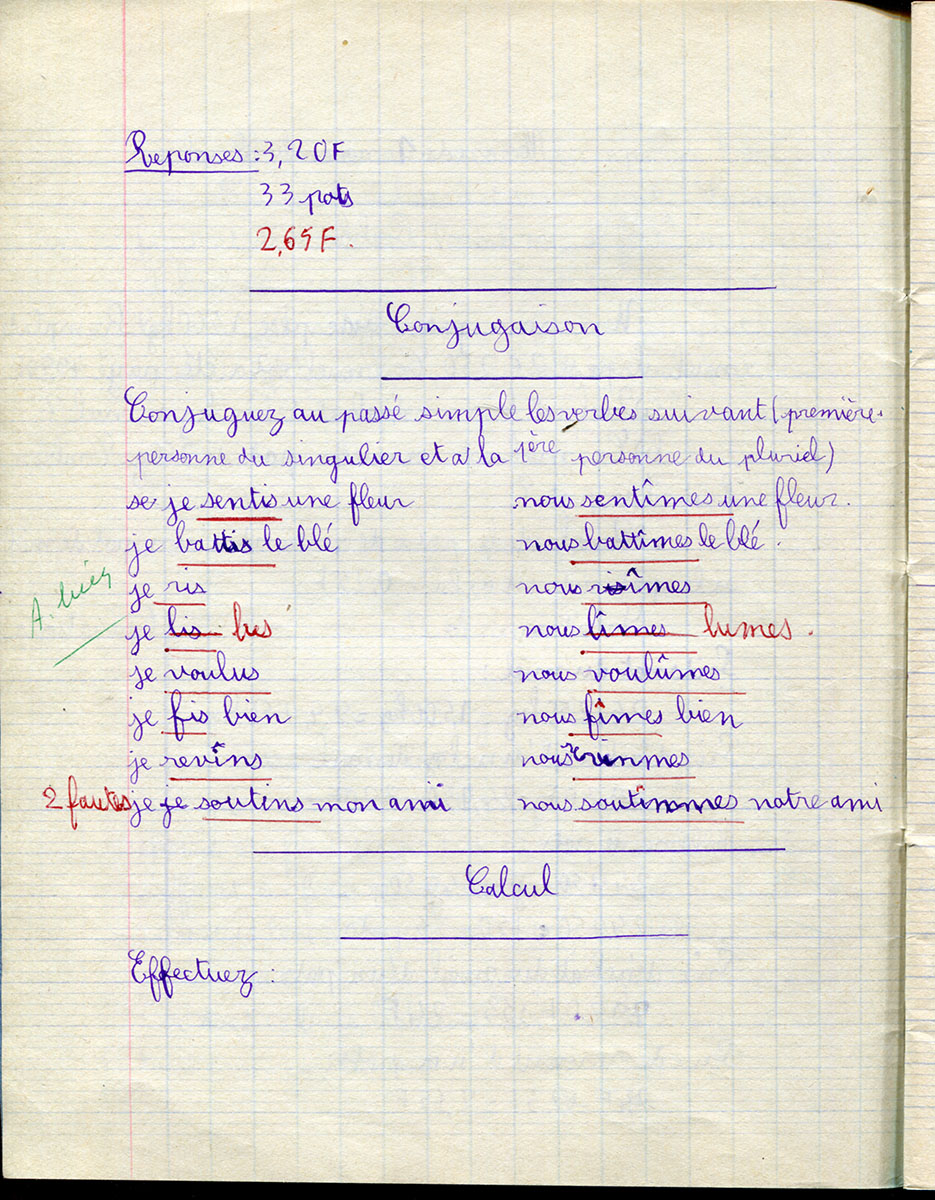 Reponses : 3,20F
33 pots
2,65F.
Conjugaison
Conjuguez au passé simple les verbes suivant (première
personne du singulier et a la 1ère personne du pluriel)
se je sentis une fleur nous sentîmes une fleur.
je battis le blé nous battîmes le blé.
je ris nous rîmes
A. bien
je lis lus nous lîmes lumes.
je voulus nous voulûmes
je fis bien nous fîmes bien
je revîns nous
2 fautes je je soutins mon ami nous soutinmes notre ami
Calcul
Effectuez :